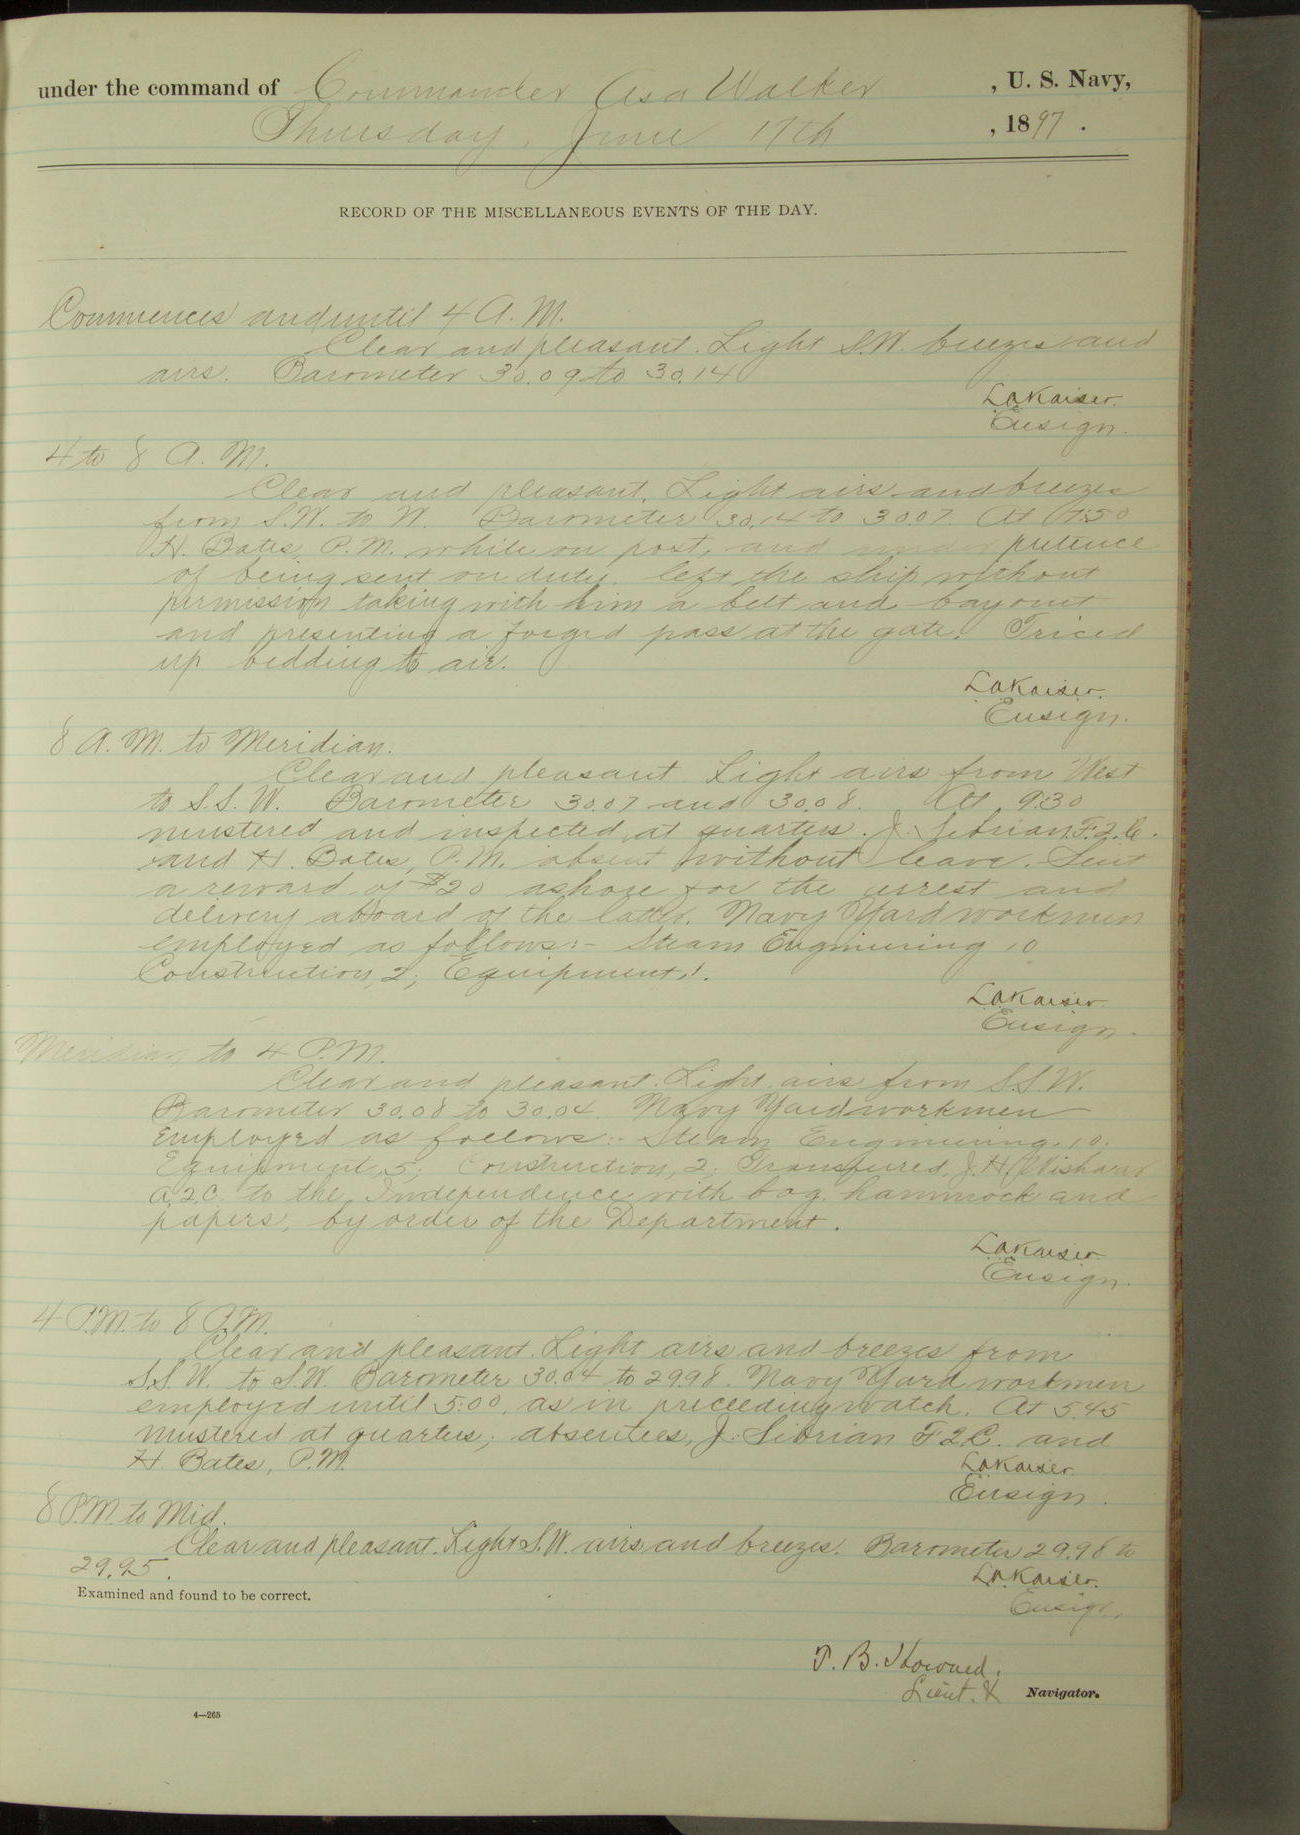 under the command of Commander Asa Walker , U. S. Navy,
Thursday, June 17th , 1897 .
RECORD OF THE MISCELLANEOUS EVENTS OF THE DAY.
Commences and until 4 A. M.
Clear and pleasant. Light S.W. breezes and
airs. Barometer 30.09 to 30.14
L A Kaiser.
Ensign.
4 to 8 A. M.
Clear and pleasant. Light airs and breezes
from S.W. to W. Barometer 30.14 to 30.07. At 7:50
H. Bates, P.M. while on post, and under pretence
of being sent on duty left the ship without
permission taking with him a belt and bayonet
and presenting a forged pass at the gate. Triced
up bedding to air.
L A Kaiser.
Ensign.
8 A. M. to Meridian.
Clear and pleasant. Light airs from West
to S.S.W. Barometer 30.07 and 30.08. At 9:30
mustered and inspected at quarters. J. Sibrian, F.2.C.
and H. Bates, P.M. absent without leave. Sent
a reward of $20 ashore for the arrest and
delivery aboard of the latter. Navy Yard workmen
employed as follows:- Steam Engineering 10
Construction, 2; Equipment, 1.
L A Kaiser.
Ensign.
Meridian to 4 P.M.
Clear and pleasant. Light airs from S.S.W.
Barometer 30.08 to 30.04. Navy Yard workmen
employed as follows:- Steam Engineering, 10;
Equipment, 5; Construction, 2; Transferred, J. H.
a,2.C. to the Independence with bag, hammock and
papers, by order of the Department.
L A Kaiser.
Ensign.
4 P.M. to 8 P.M.
Clear and pleasant. Light airs and breezes from
S.S.W. to S.W. Barometer 30.04 to 29.98. Navy Yard workmen
employed until 5:00, as in preceeding watch. At 5.45
mustered at quarters; absentees, J. Sibrian F2C. and
H. Bates, P.M.
L A Kaiser.
Ensign.
8 P.M. to Mid.
Clear and pleasant. Light S.W. airs and breezes. Barometer 29.98 to
29.95.
L A Kaiser.
Ensign.
Examined and found to be correct.
T. B. Howard.
Lieut. & Navigator.
4—265